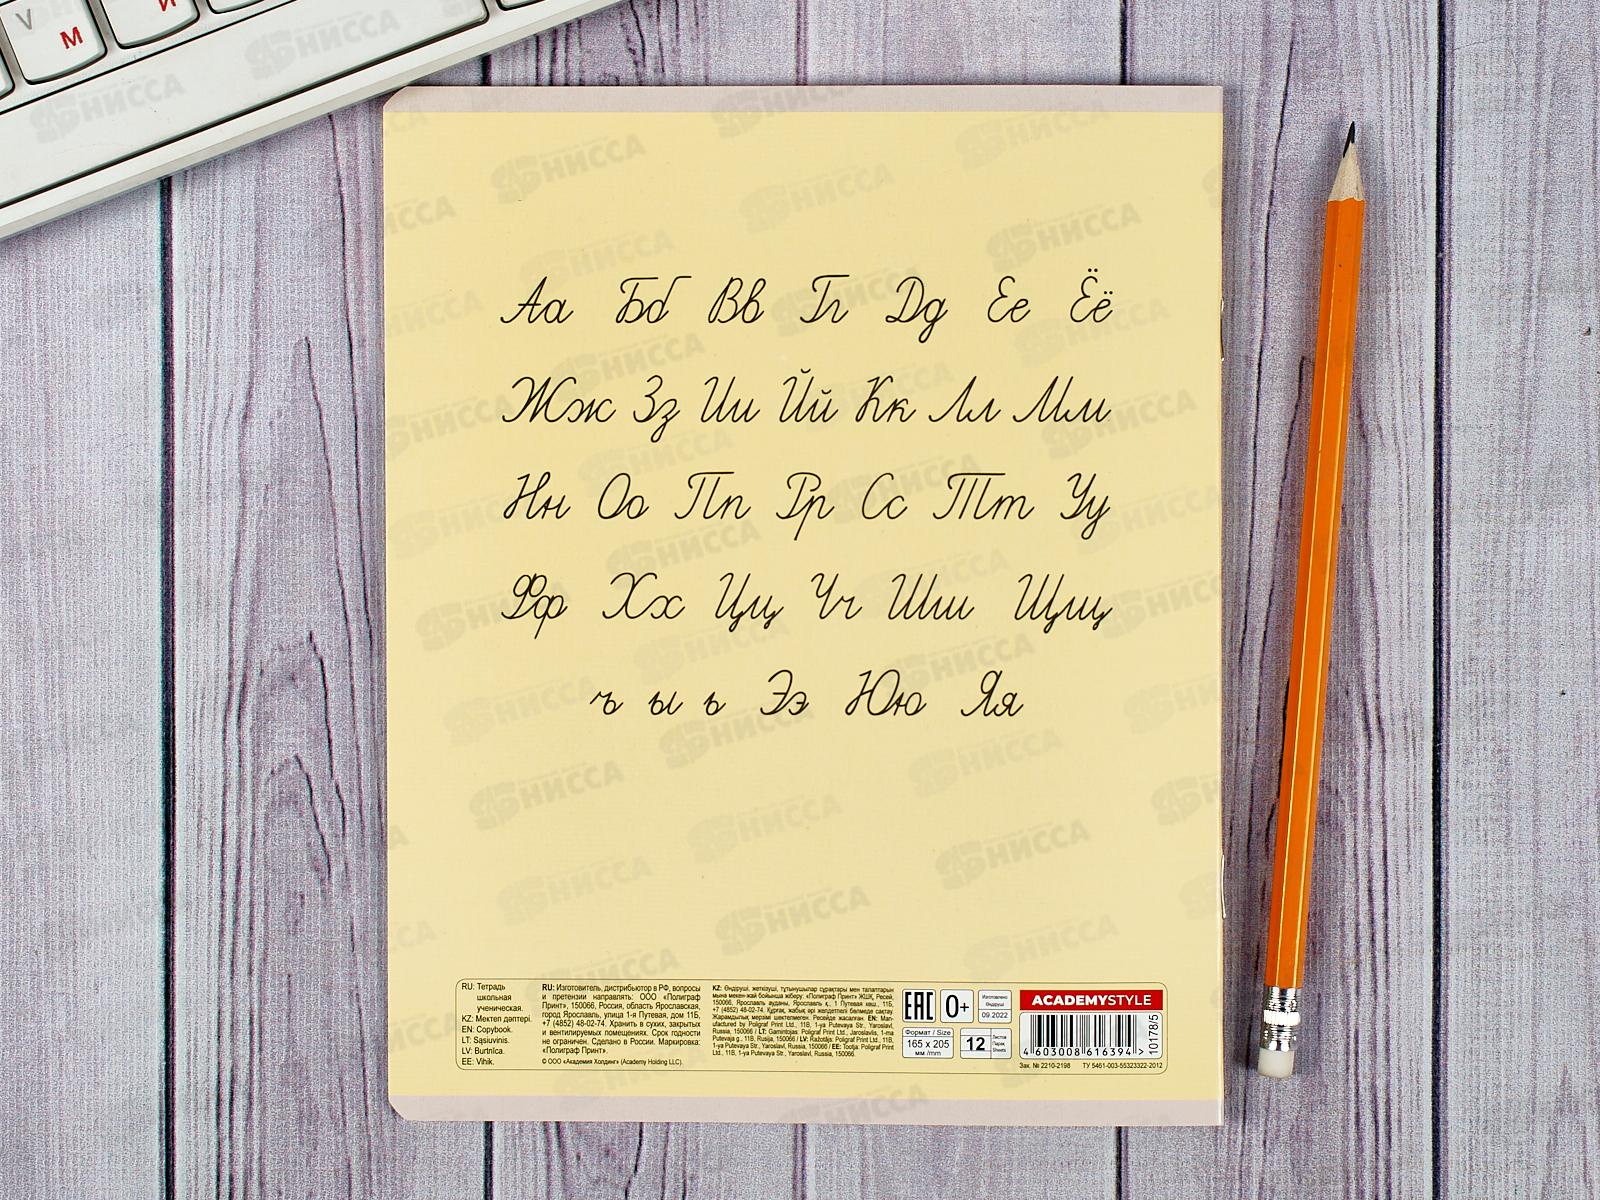 V М И
Аа Бб Вв Гг Дд Ее Ёё
Жж Зз Ии Йй Кк Лл Мм
Нн Оо Пп Рр Сс Тт Уу
Фф Хх Цц Чч Шш Щщ
ъ ы ь Ээ Юю Яя
RU: Тетрадь
школьная
ученическая.
KZ: Мектеп дәптері.
EN: Copybook.
LT: Sąsiuvinis.
LV: Burtnīca.
EE: Vihik.
RU: Изготовитель, дистрибьютор в РФ, вопросы
и претензии направлять: ООО «Полиграф
Принт», 150066, Россия, область Ярославская,
город Ярославль, улица 1-я Путевая, дом 11Б,
+7 (4852) 48-02-74. Хранить в сухих, закрытых
и вентилируемых помещениях. Срок годности
не ограничен. Сделано в России. Маркировка:
«Полиграф Принт».
© ООО «Академия Холдинг» (Academy Holding LLC).
KZ: Өндіруші, жеткізуші, тұтынушылар сұрақтары мен талаптарын
мына мекен-жай бойынша жіберу: «Полиграф Принт» ЖШҚ, Ресей,
150066, Ярославль ауданы, Ярославль қ., 1 Путевая көш., 11Б,
+7 (4852) 48-02-74. Құрғақ, жабық әрі желдетгелі бөлмеде сақтау.
Жарамдылық мерзімі шектелмеген. Ресейде жасалған. EN: Man-
ufactured by Poligraf Print Ltd., 11B, 1-ya Putevaya Str., Yaroslavl,
Russia, 150066 / LT: Gamintojas: Poligraf Print Ltd., Jaroslavlis, 1-ma
Putevaja g., 11B, Rusija, 150066 / LV: Ražotājs: Poligraf Print Ltd., 11B,
1-ya Putevaya Str., Yaroslavl, Russia, 150066 / EE: Tootja: Poligraf Print
Ltd., 11B, 1-ya Putevaya Str., Yaroslavl, Russia, 150066.
EAC
0+
Изготовлено
Өндіруші:
09.2022
Формат / Size
165 x 205
мм /mm
12
Листов
Парақ
Sheets
ACADEMYSTYLE
4 603008 616394 >
10178/5
Зак. № 2210-2198 ТУ 5461-003-55323322-2012
НИССА